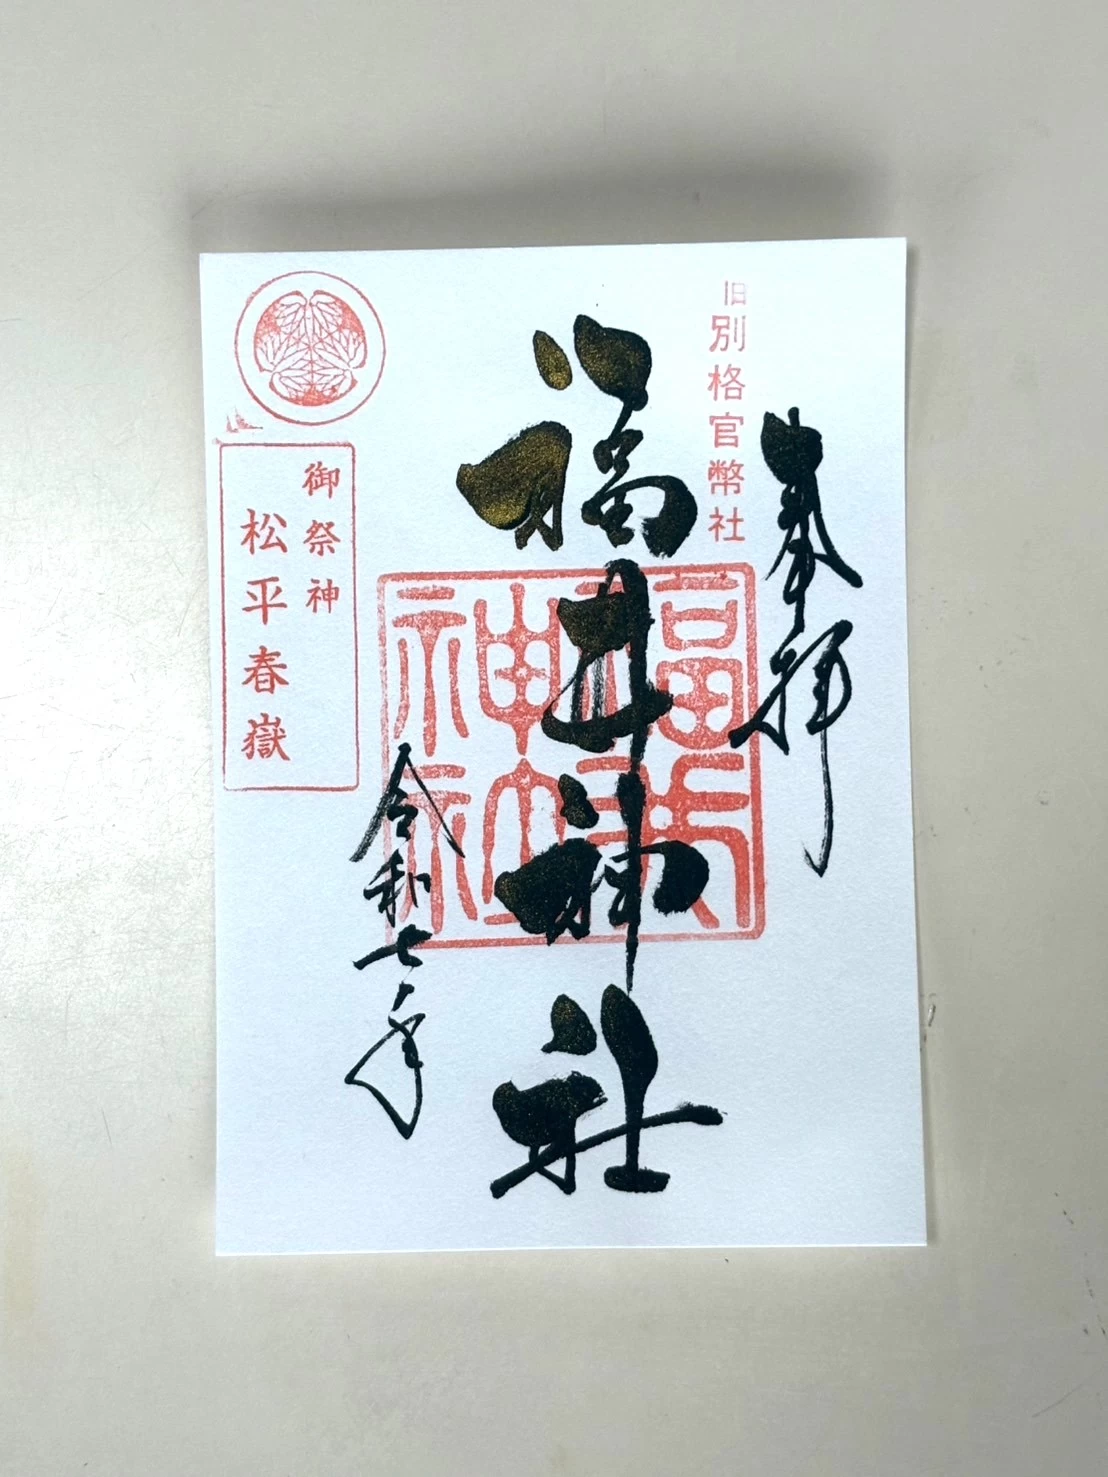 奉拝
旧別格官幣社
福井神社
福井神社
令和七年
御祭神
松平春嶽